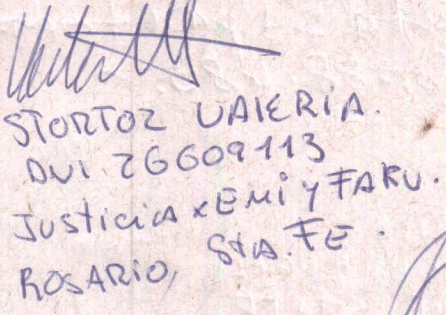 STORTOZ VALERIA.
DNI. 26609113
JUSTICIA x EMI Y FAKU.
ROSARIO, STA. FE.